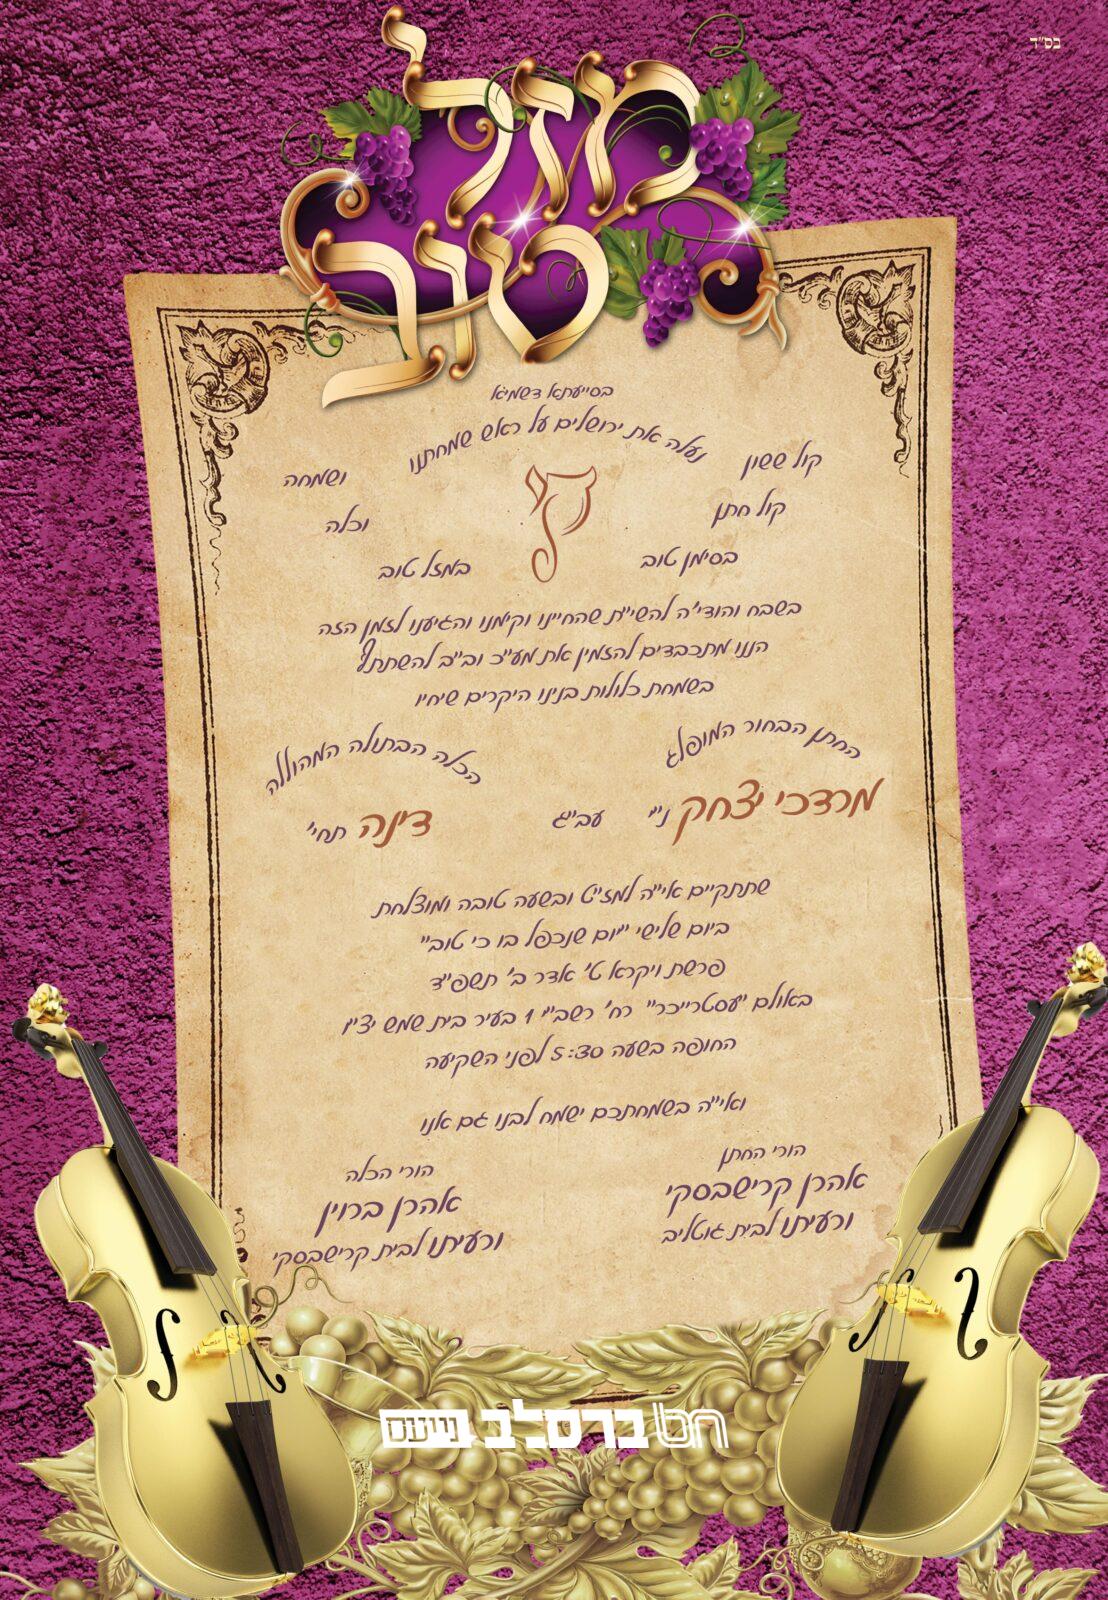 בס"ד
מזל
טוב
בסייעתא דשמיא
נעלה את ירושלים על ראש שמחתנו
קול ששון ושמחה
קול חתן וכלה
בסימן טוב במזל טוב
בשבח והודי'ה להשי"ת שהחיינו וקימנו והגיענו לזמן הזה
הננו מתכבדים להזמין את מע"כ וב"ב להשתתף
בשמחת כלולות בנינו היקרים שיחיו
החתן הבחור המופלג הכלה הבתולה המהוללה
מרדכי יצחק ני"ו עב"ג דינה תחי'
שתתקיים אי"ה למז"ט ובשעה טובה ומוצלחת
ביום שלישי "יום שנכפל בו כי טוב"
פרשת ויקרא ט' אדר ב' תשפ"ד
באולם "עסטרייכר" רח' רשב"י 1 בעיר בית שמש יצ"ו
החופה בשעה 5:30 לפני השקיעה
ואי"ה בשמחתכם ישמח לבנו גם אנו
הורי החתן הורי הכלה
אהרן קרישבסקי אהרן ברוין
ורעיתו לבית גוטליב ורעיתו לבית קרישבסקי
ברסלב נייעס